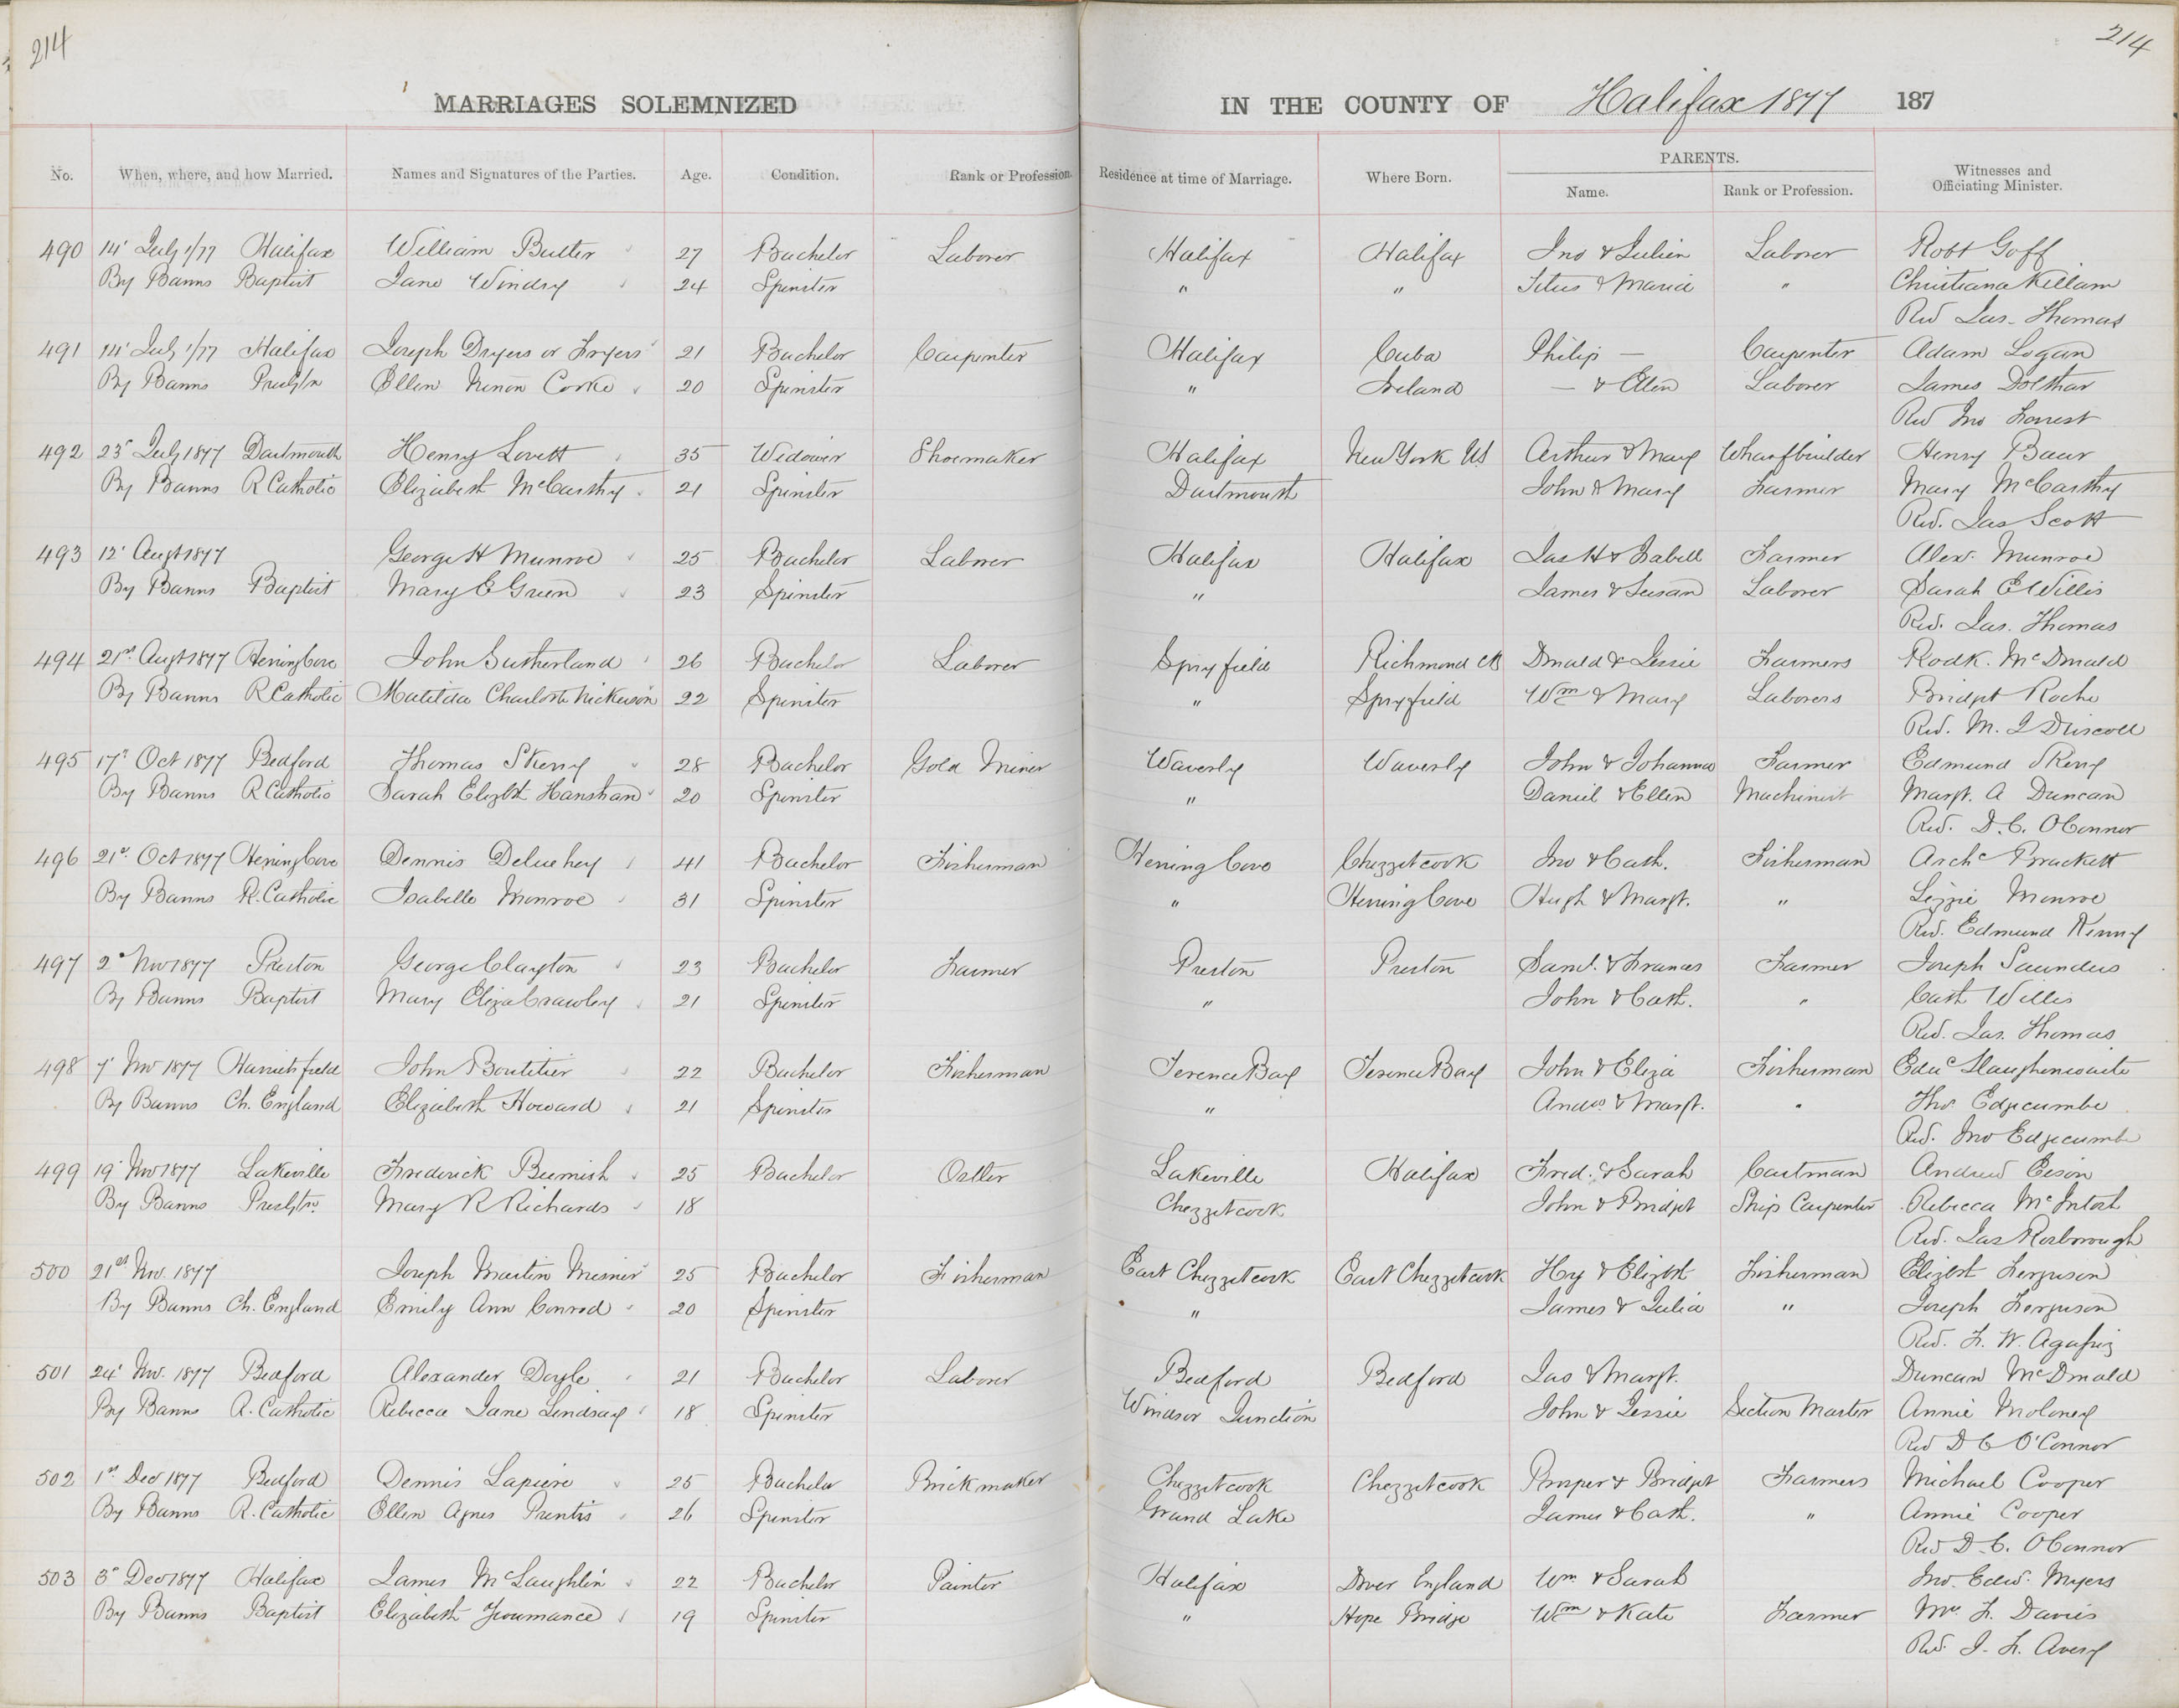 214
214
MARRIAGES SOLEMNIZED IN THE COUNTY OF Halifax 1877 187
PARENTS.
No. When, where, and how Married. Names and Signatures of the Parties. Age. Condition. Rank or Profession. Residence at time of Marriage. Where Born. Name. Rank or Profession. Witnesses and Officiating Minister.
490 14' July 1/77 Halifax William Butler 27 Bachelor Laborer Halifax Halifax Jno & Julien Laborer Robt Goff
By Banns Baptist Jane 24 Spinster " " Titus & Maria " Christiana Killam
Rev Jas. Thomas
491 14' July 1/77 Halifax Joseph Dryers or Fryers 21 Bachelor Carpenter Halifax Cuba Philip — Carpenter Adam Logan
By Banns Presbtn Ellen Corke 20 Spinster " Ireland — & Ellen Laborer James
Rev Jno Forrest
492 23' July 1877 Dartmouth Henry Lovett 35 Widower Shoemaker Halifax New York US Arthur & Mary Wharfbuilder Henry
By Banns R Catholic Elizabeth McCarthy 21 Spinster Dartmouth John & Mary Farmer Mary McCarthy
Rev. Jas Scott
493 12' Augt 1877 George H Munroe 25 Bachelor Laborer Halifax Halifax Jas H & Isabell Farmer Alexr Munroe
By Banns Baptist Mary E Green 23 Spinster " James & Susan Laborer Sarah E Willis
Rev. Jas. Thomas
494 21st Augt 1877 Herring Cove John Sutherland 26 Bachelor Laborer Spryfield Richmond CB Donald & Jessie Farmers Rodk. McDonald
By Banns R Catholic Matilda Charlotte Nickerson 22 Spinster " Spryfield Wm & Mary Laborers Bridget Roche
Rev. M. J Driscoll
495 17' Oct 1877 Bedford Thomas Skerry 28 Bachelor Gold Miner Waverly Waverly John & Johanna Farmer Edmund Skerry
By Banns R Catholic Sarah Elizbt Hanshan 20 Spinster " Daniel & Ellen Machinist Margt. A Duncan
Rev. D. C. OConnor
496 21st Oct 1877 Herring Cove Dennis Deluchey 41 Bachelor Fisherman Herring Cove Chezzetcook Jno & Cath. Fisherman Archd Brackett
By Banns R. Catholic Isabelle Monroe 31 Spinster " Herring Cove Hugh & Margt. " Lizzie Monroe
Rev. Edmund Kenny
497 2' Nov 1877 Preston George Clayton 23 Bachelor Farmer Preston Preston Saml. & Frances Farmer Joseph Saunders
By Banns Baptist Mary Eliza Crawley 21 Spinster " John & Cath. " Cath Willis
Rev. Jas. Thomas
498 7' Nov 1877 Harrietsfield John Boutilier 22 Bachelor Fisherman Terence Bay Terence Bay John & Eliza Fisherman Edwd Slaughenwaite
By Banns Ch. England Elizabeth Howard 21 Spinster " Andw & Margt. " Thos Edgecumbe
Rev. Jno Edgecumbe
499 19' Nov 1877 Lakeville Frederick Beemish 25 Bachelor Ostler Lakeville Halifax Fred. & Sarah Cartman Andrew Eison
By Banns Presbtn Mary R Richards 18 Chezzetcook John & Bridget Ship Carpenter Rebecca McIntosh
Rev. Jas Rosborough
500 21st Nov. 1877 Joseph Martin Mesner 25 Bachelor Fisherman East Chezzetcook East Chezzetcook Hy & Elizbt Fisherman Elizbt Ferguson
By Banns Ch. England Emily Ann Conrod 20 Spinster " James & Julia " Joseph Ferguson
Rev. F. W.
501 24' Nov. 1877 Bedford Alexander Doyle 21 Bachelor Laborer Bedford Bedford Jas & Margt. Duncan McDonald
By Banns R. Catholic Rebecca Jane Lindsay 18 Spinster Windsor Junction John & Jessie Section Master Annie Moloney
Rev D C O'Connor
502 1st Dec 1877 Bedford Dennis Lapiere 25 Bachelor Brickmaker Chezzetcook Chezzetcook Prosper & Bridget Farmers Michael Cooper
By Banns R. Catholic Ellen Agnes Prentis 26 Spinster Grand Lake James & Cath. " Annie Cooper
Rev D. C. OConnor
503 3' Dec 1877 Halifax James McLaughlin 22 Bachelor Painter Halifax Dover England Wm & Sarah Jno. Edw. Myers
By Banns Baptist Elizabeth 19 Spinster " Hope Bridge Wm & Kate Farmer Mrs F. Davies
Rev. J. F. Avery